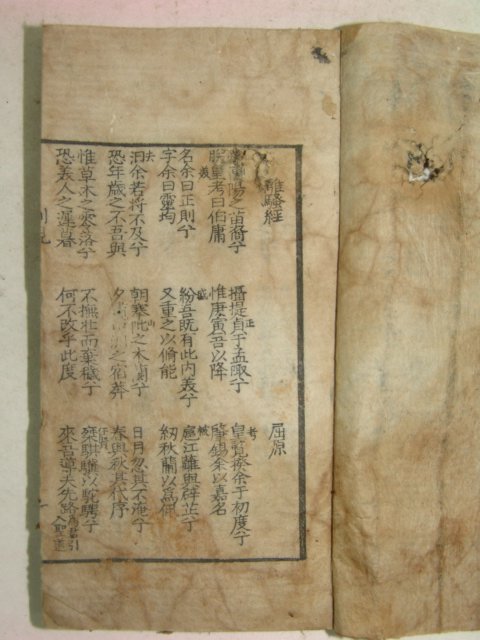 離騷經
屈原
高陽之苗裔兮
朕皇考曰伯庸
攝提貞于孟陬兮
惟庚寅吾以降
皇覽揆余于初度兮
肇錫余以嘉名
名余曰正則兮
字余曰靈均
紛吾既有此內美兮
又重之以脩能
扈江離與辟芷兮
紉秋蘭以爲佩
汩余若將不及兮
恐年歲之不吾與
朝搴阰之木蘭兮
夕洲之宿莽
日月忽其不淹兮
春與秋其代序
惟草木之零落兮
恐美人之遲暮
不撫壯而棄穢兮
何不改乎此度
乘騏驥以駝騁兮
來吾導夫先路